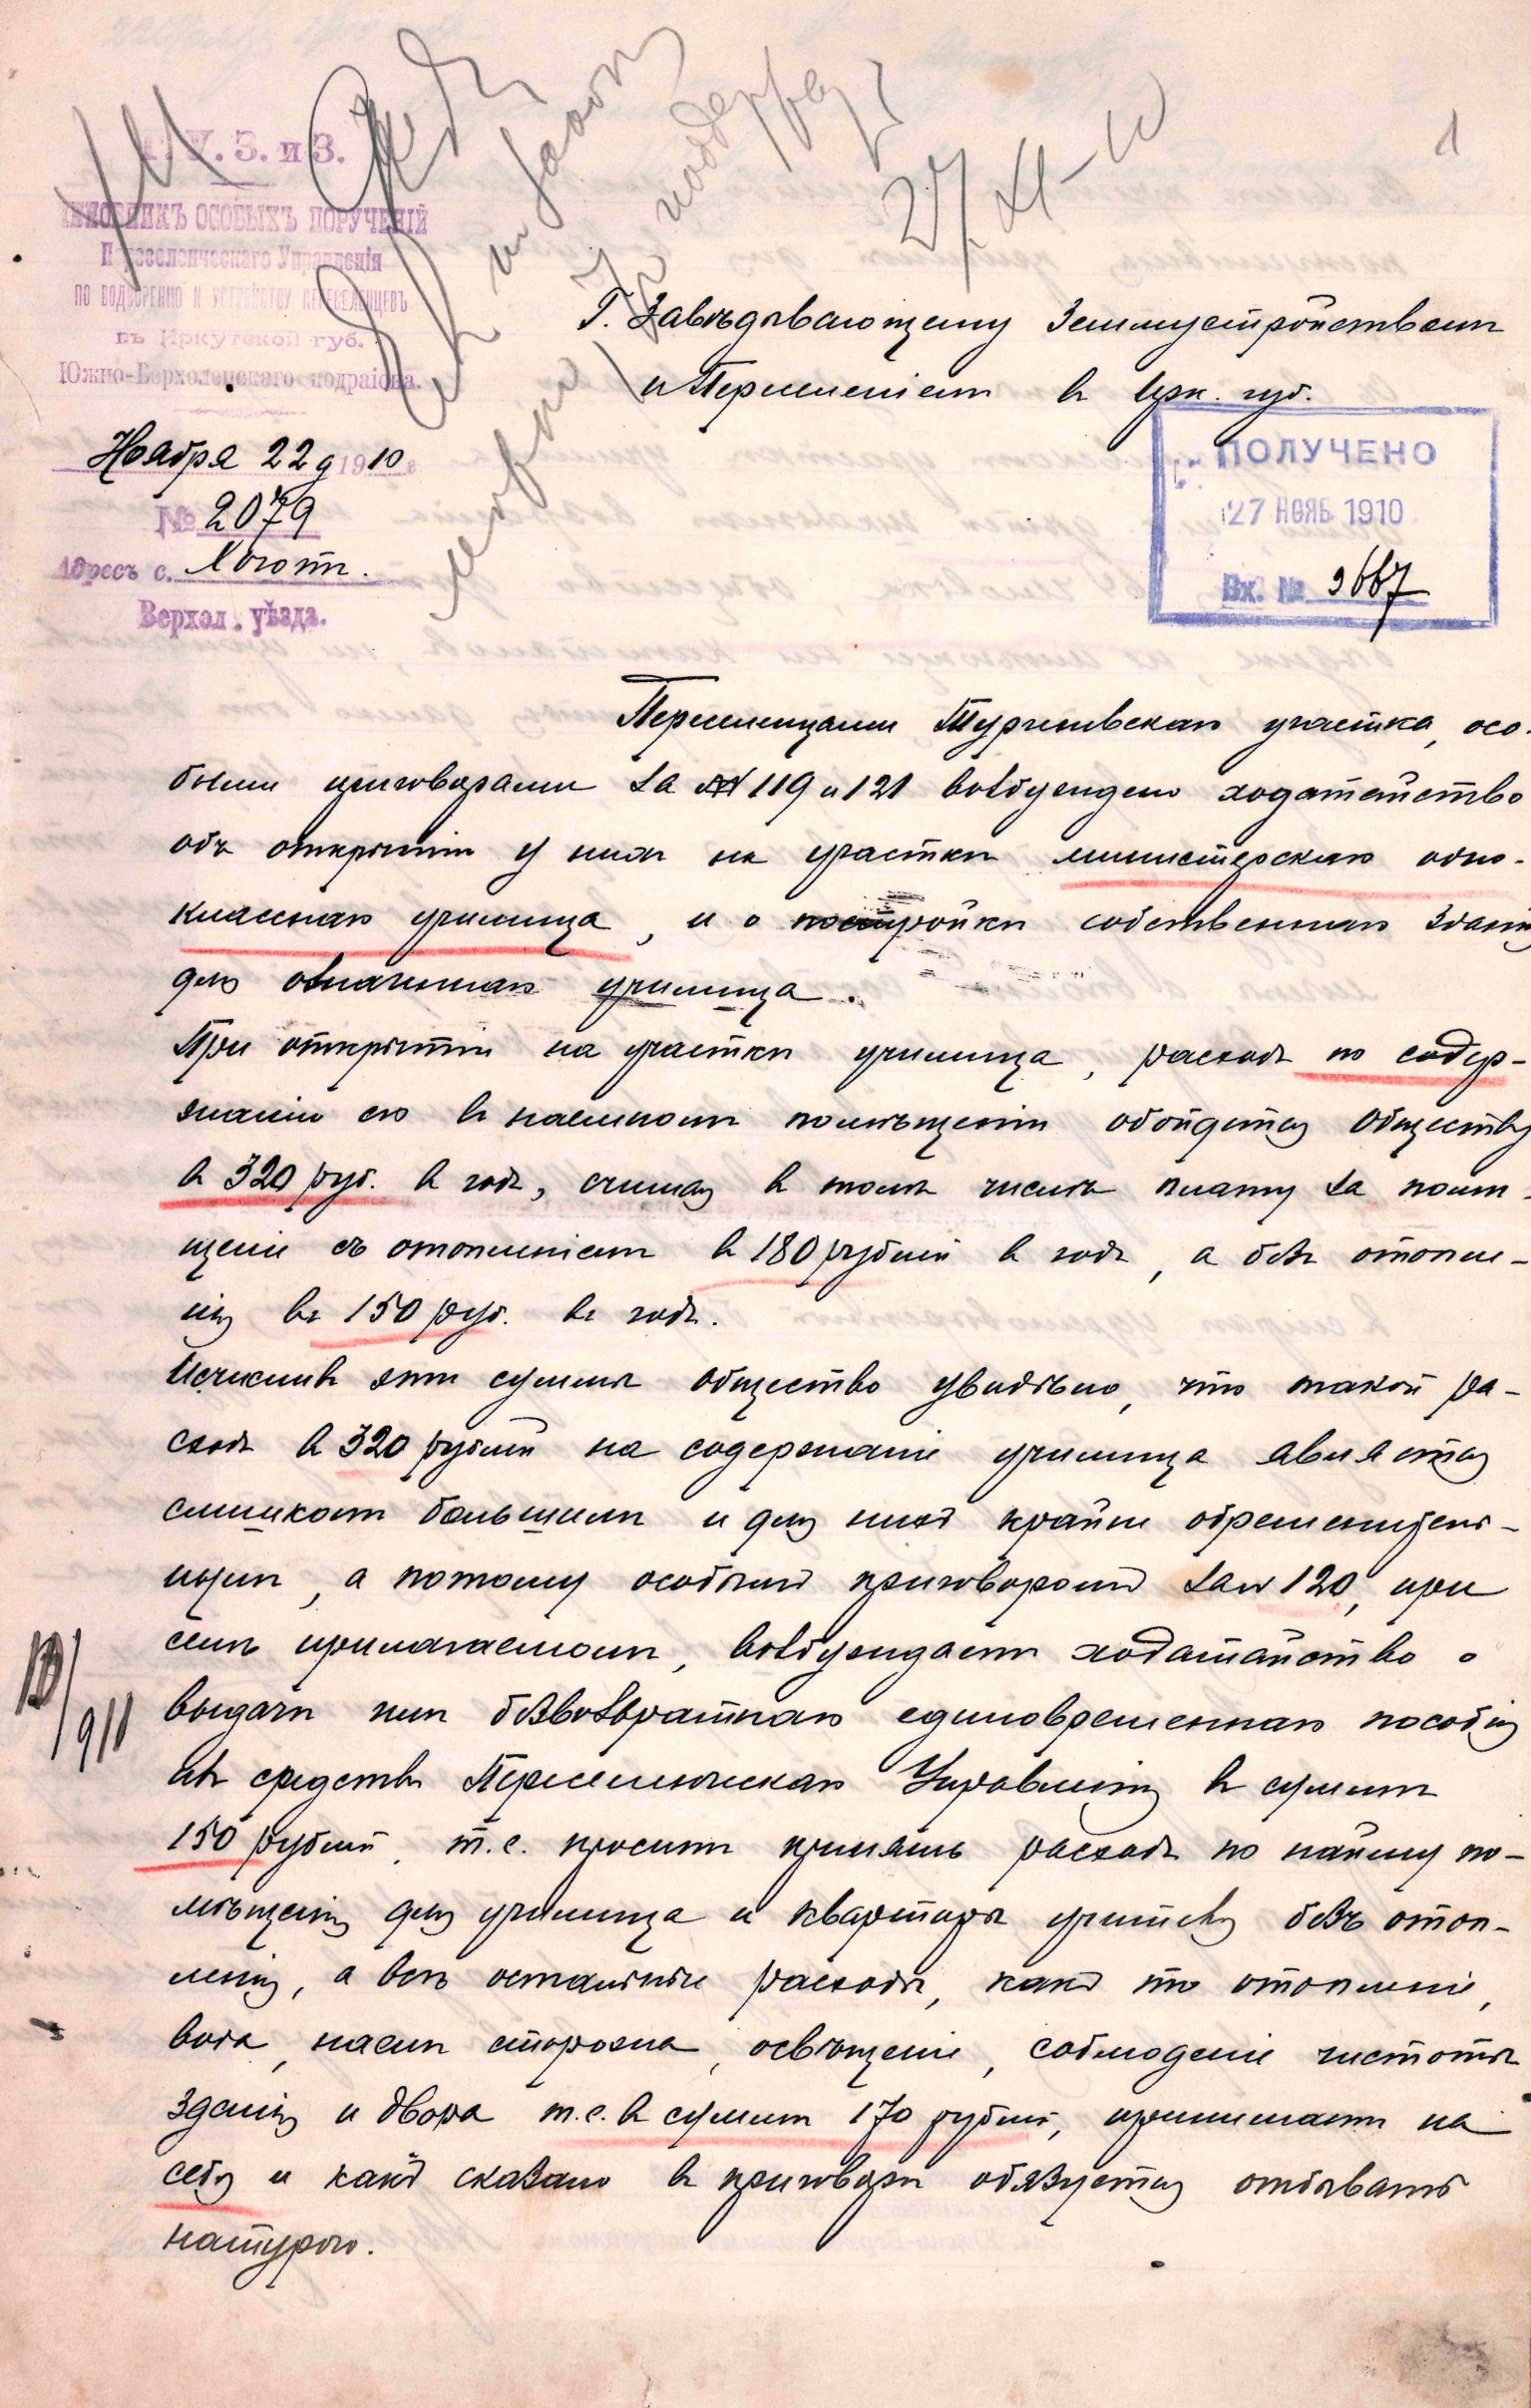 Г. У. З. и З.
ЧИНОВНИКЪ ОСОБЫХЪ ПОРУЧЕНІЙ
Переселенческаго Управленія
ПО ВОДВОРЕНІЮ И УСТРОЙСТВУ ПЕРЕСЕЛЕНЦЕВЪ
въ Иркутской губ.
Южно-Верхоленскаго подраіона.
Ноября 22 д 1910 г
№ 2079
Адресъ с. Хоготъ.
Верхол. уѣзда.
27/XI-10
1
Г. Завѣдывающему Землеустройствомъ
и Переселеніемъ въ Ирк. губ.
ПОЛУЧЕНО
27 НОЯБ 1910
Вх. № 9667
Переселенцами Тургеневскаго участка, осо-
быми приговорами за №№ 119 и 121 возбуждено ходатайство
объ открытіи у нихъ на участкѣ министерскаго одно-
класснаго училища, и о постройкѣ собственнаго зданія
для означеннаго училища.
При открытіи на участкѣ училища, расходъ по содер-
жанію его въ наемномъ помѣщеніи обойдется Обществу
въ 320 руб. въ годъ, считая въ томъ числѣ плату за помѣ-
щеніе съ отопленіемъ въ 180 рублей въ годъ, а безъ отопле-
нія въ 150 руб. въ годъ.
Исчисливъ эти суммы общество увидѣло, что такой ра-
сходъ въ 320 рублей на содержаніе училища является
слишкомъ большимъ и для нихъ крайне обременитель-
нымъ, а потому особымъ приговоромъ за № 120, при
семъ прилагаемомъ, возбуждаетъ ходатайство о
выдачѣ имъ безвозвратнаго единовременнаго пособія
изъ средствъ Переселенческаго Управленія въ суммѣ
150 рублей, т.е. проситъ принять расходъ по найму по-
мѣщенія для училища и квартиры учителю безъ отоп-
ленія, а всѣ остальные расходы, какъ то отопленіе,
вода, наемъ сторожа, освѣщеніе, соблюденіе чистоты
зданія и двора т.е. въ суммѣ 170 рублей, принимаетъ на
себя и какъ сказано въ приговорѣ обязуется отбывать
натурою.